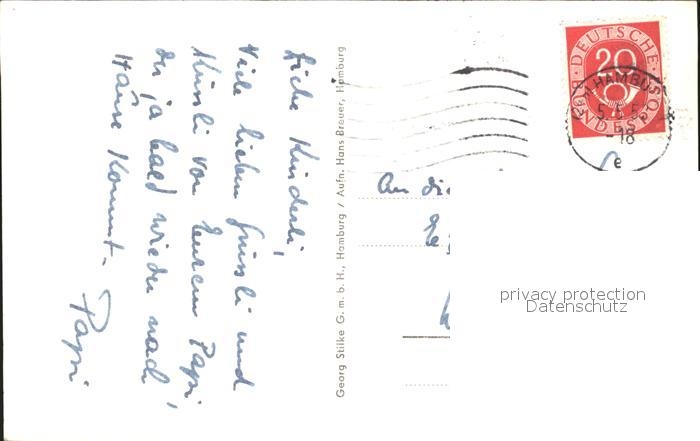 Liebe Kinderli,
Viele lieben Grüssli und
Küssli von Eurem Papi,
der ja bald wieder nach
Hause kommt.
Papi
Georg Stilke G.m.b.H., Hamburg / Aufn. Hans Breuer, Hamburg
DEUTSCHE
20
POST
HAMBURG
An die
privacy protection
Datenschutz